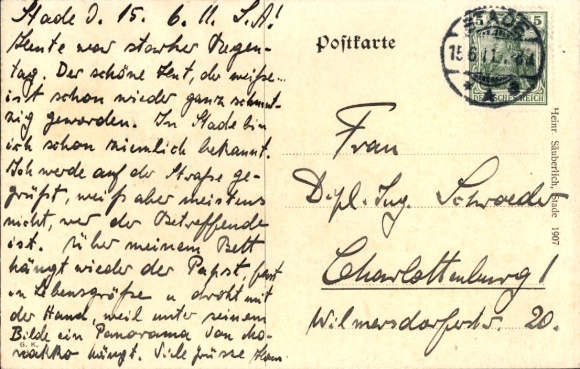 Stade d. 15. 6. 11. L. A!
Heute war starker Regen-
tag. Der schöne Hut, der weiße
ist schon wieder ganz schmut-
zig geworden. In Stade bin
ich schon ziemlich bekannt.
Ich werde auf der Straße ge-
grüßt, weiß aber meistens
nicht, wer der Betreffende
ist. Über meinem Bett
hängt wieder der Papst, fast
in Lebensgröße u droht mit
der Hand, weil unter seinem
Bilde ein Panorama von Mo-
nakko hängt. Viele Grüsse Hans
G. K.
Postkarte
5 5
STADE
15.6.11.
DEUTSCHES REICH
Frau
Dipl. Ing. Schroeder
Charlottenburg 1
Wilmersdorferstr. 20.
Heinr. Säuberlich, Stade 1907